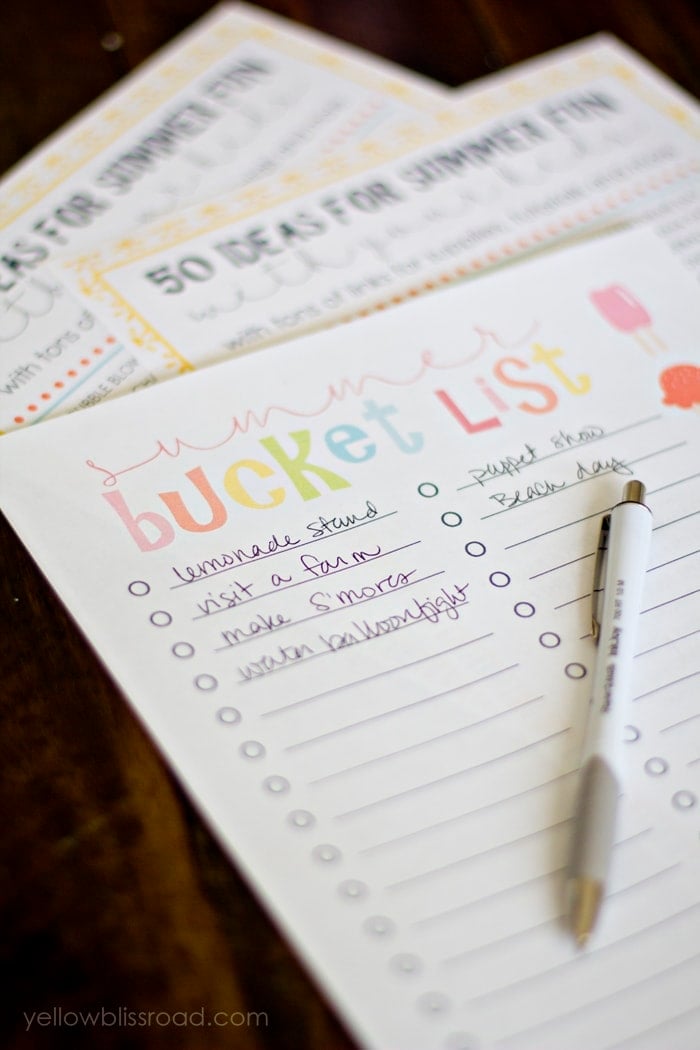 50 IDEAS FOR SUMMER FUN
with tons of
AS FOR SUMMER FUN
with tons of
BUBBLE BLOW
summer
bucket List
lemonade stand
visit a farm
make s'mores
water balloon fight
puppet show
Beach day
yellowblissroad.com